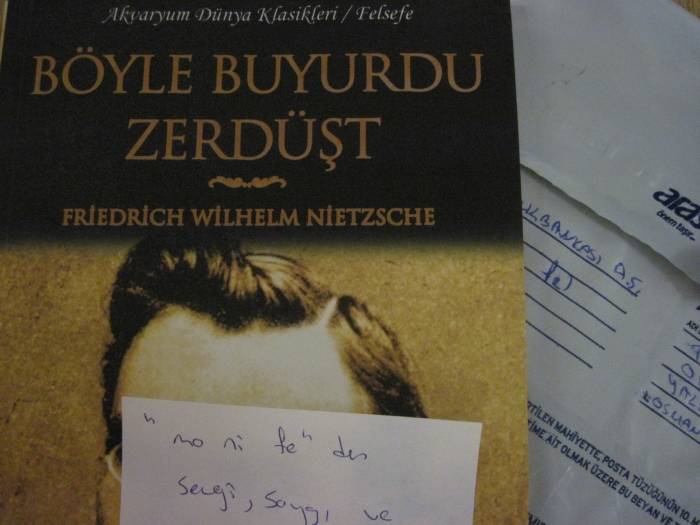 Akvaryum Dünya Klasikleri / Felsefe
BÖYLE BUYURDU
ZERDÜŞT
FRİEDRİCH WİLHELM NİETZSCHE
"mo ni fe" den
sevgi, saygı ve
aras
önem taşır.
LBANKASI A.Ş.
RTİLEN MAHİYETTE, POSTA TÜZÜĞÜNÜN 10.
TİME AİT OLMAK ÜZERE BU BEYAN VE